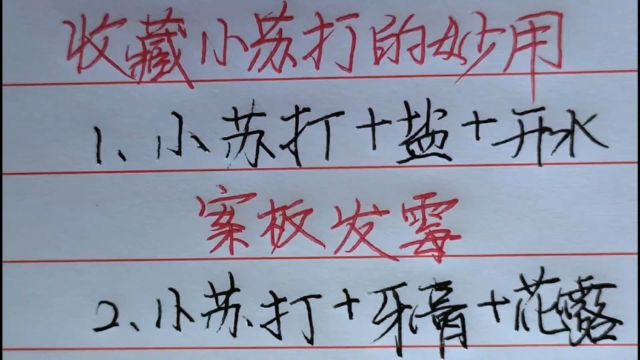 收藏小苏打的妙用
1、小苏打+盐+开水
案板发霉
2、小苏打+牙膏+花露